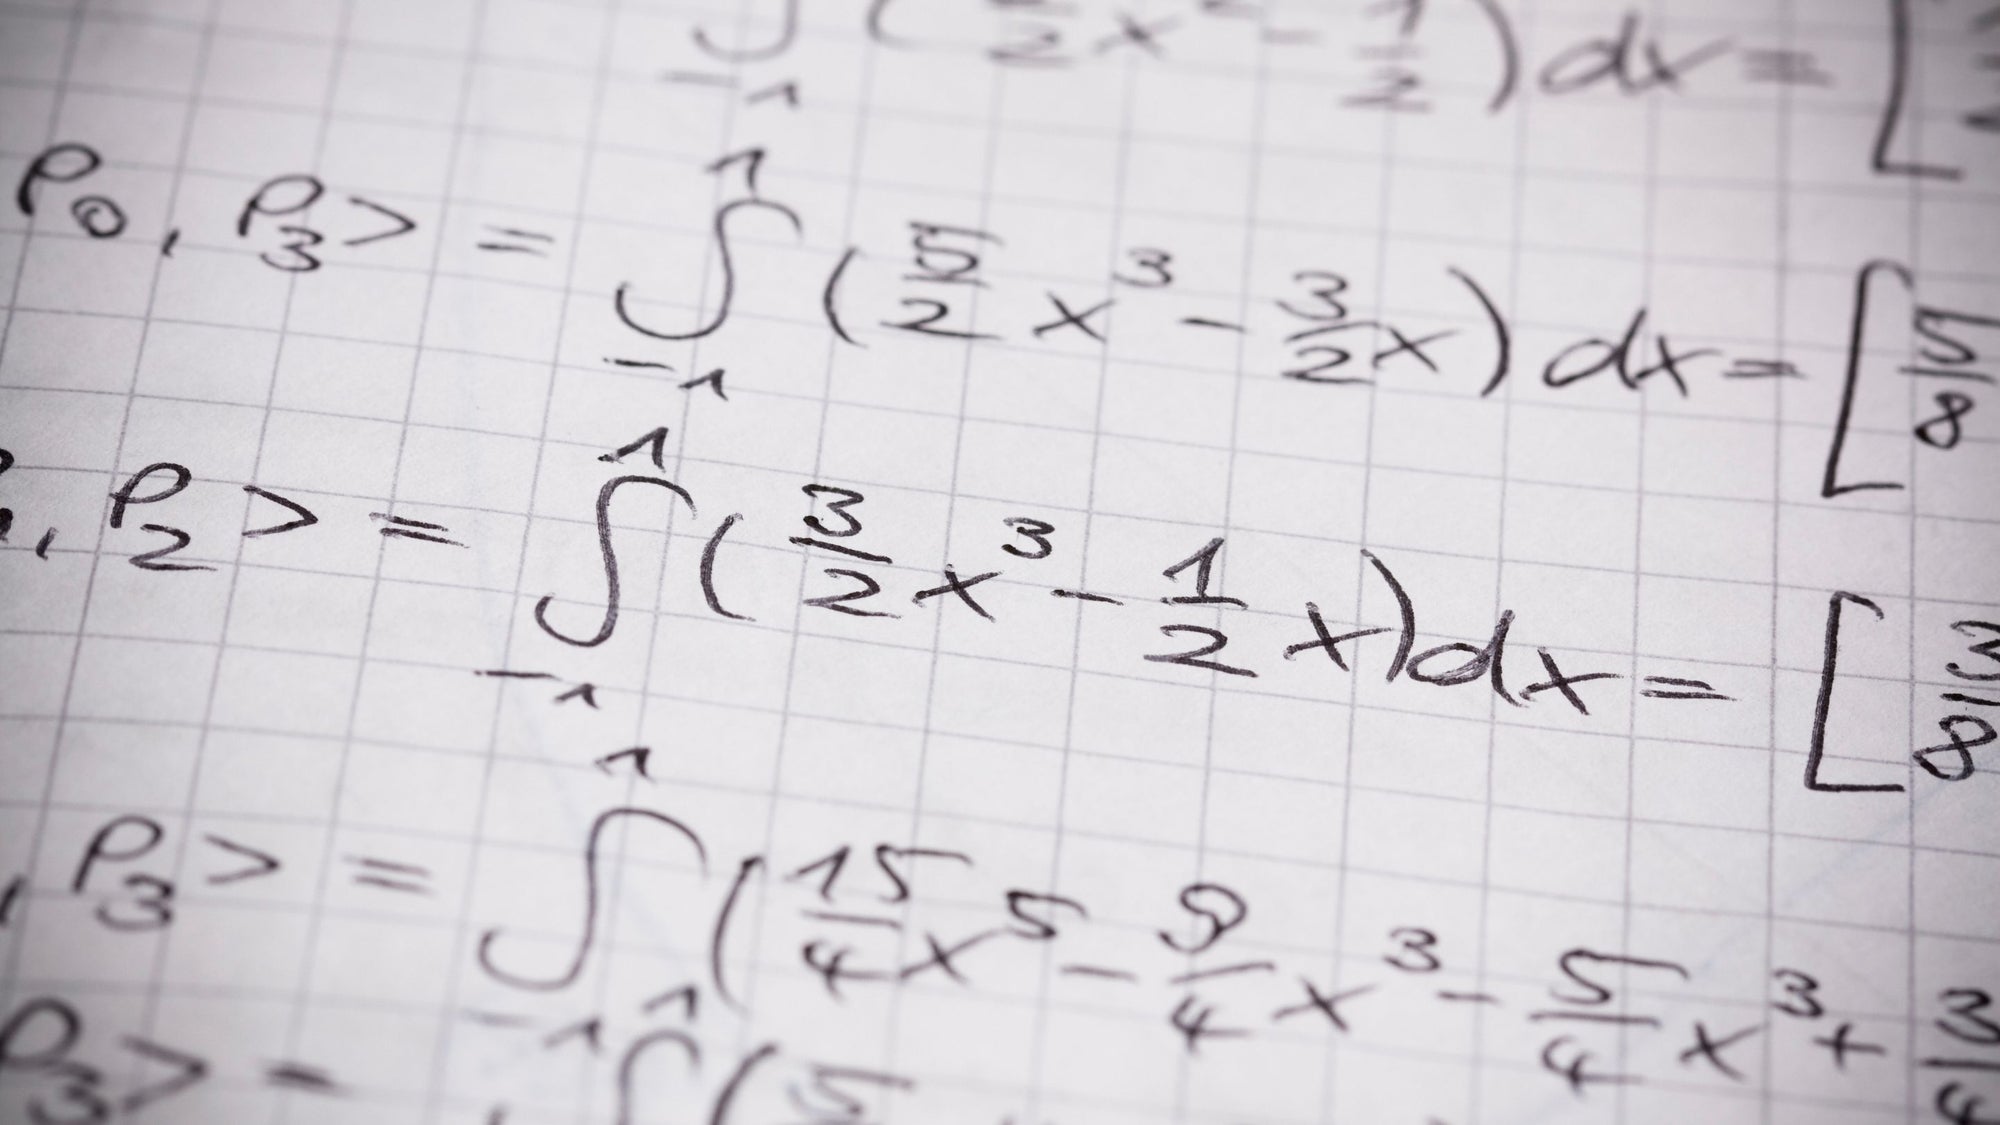 ∫₋₁ ( /2 x² - 1/2 ) dx = [
P₀, P₃> = ∫₋₁¹ (5/2 x³ - 3/2 x) dx = [5/8
, P₂> = ∫₋₁¹ (3/2 x³ - 1/2 x) dx = [3/8
, P₃> = ∫₋₁¹ (15/4 x⁵ - 9/4 x³ - 5/4 x³ + 3/4
P₃> = ∫¹ (5